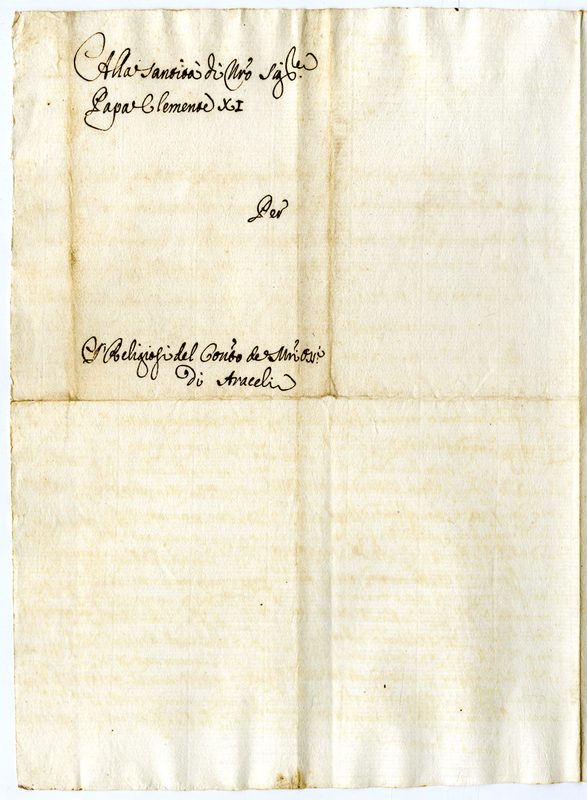 Alla Santità di Nro Sigre
Papa Clemente XI
Per
I Religiosi del Conto de Mri Ossi
Di Araceli